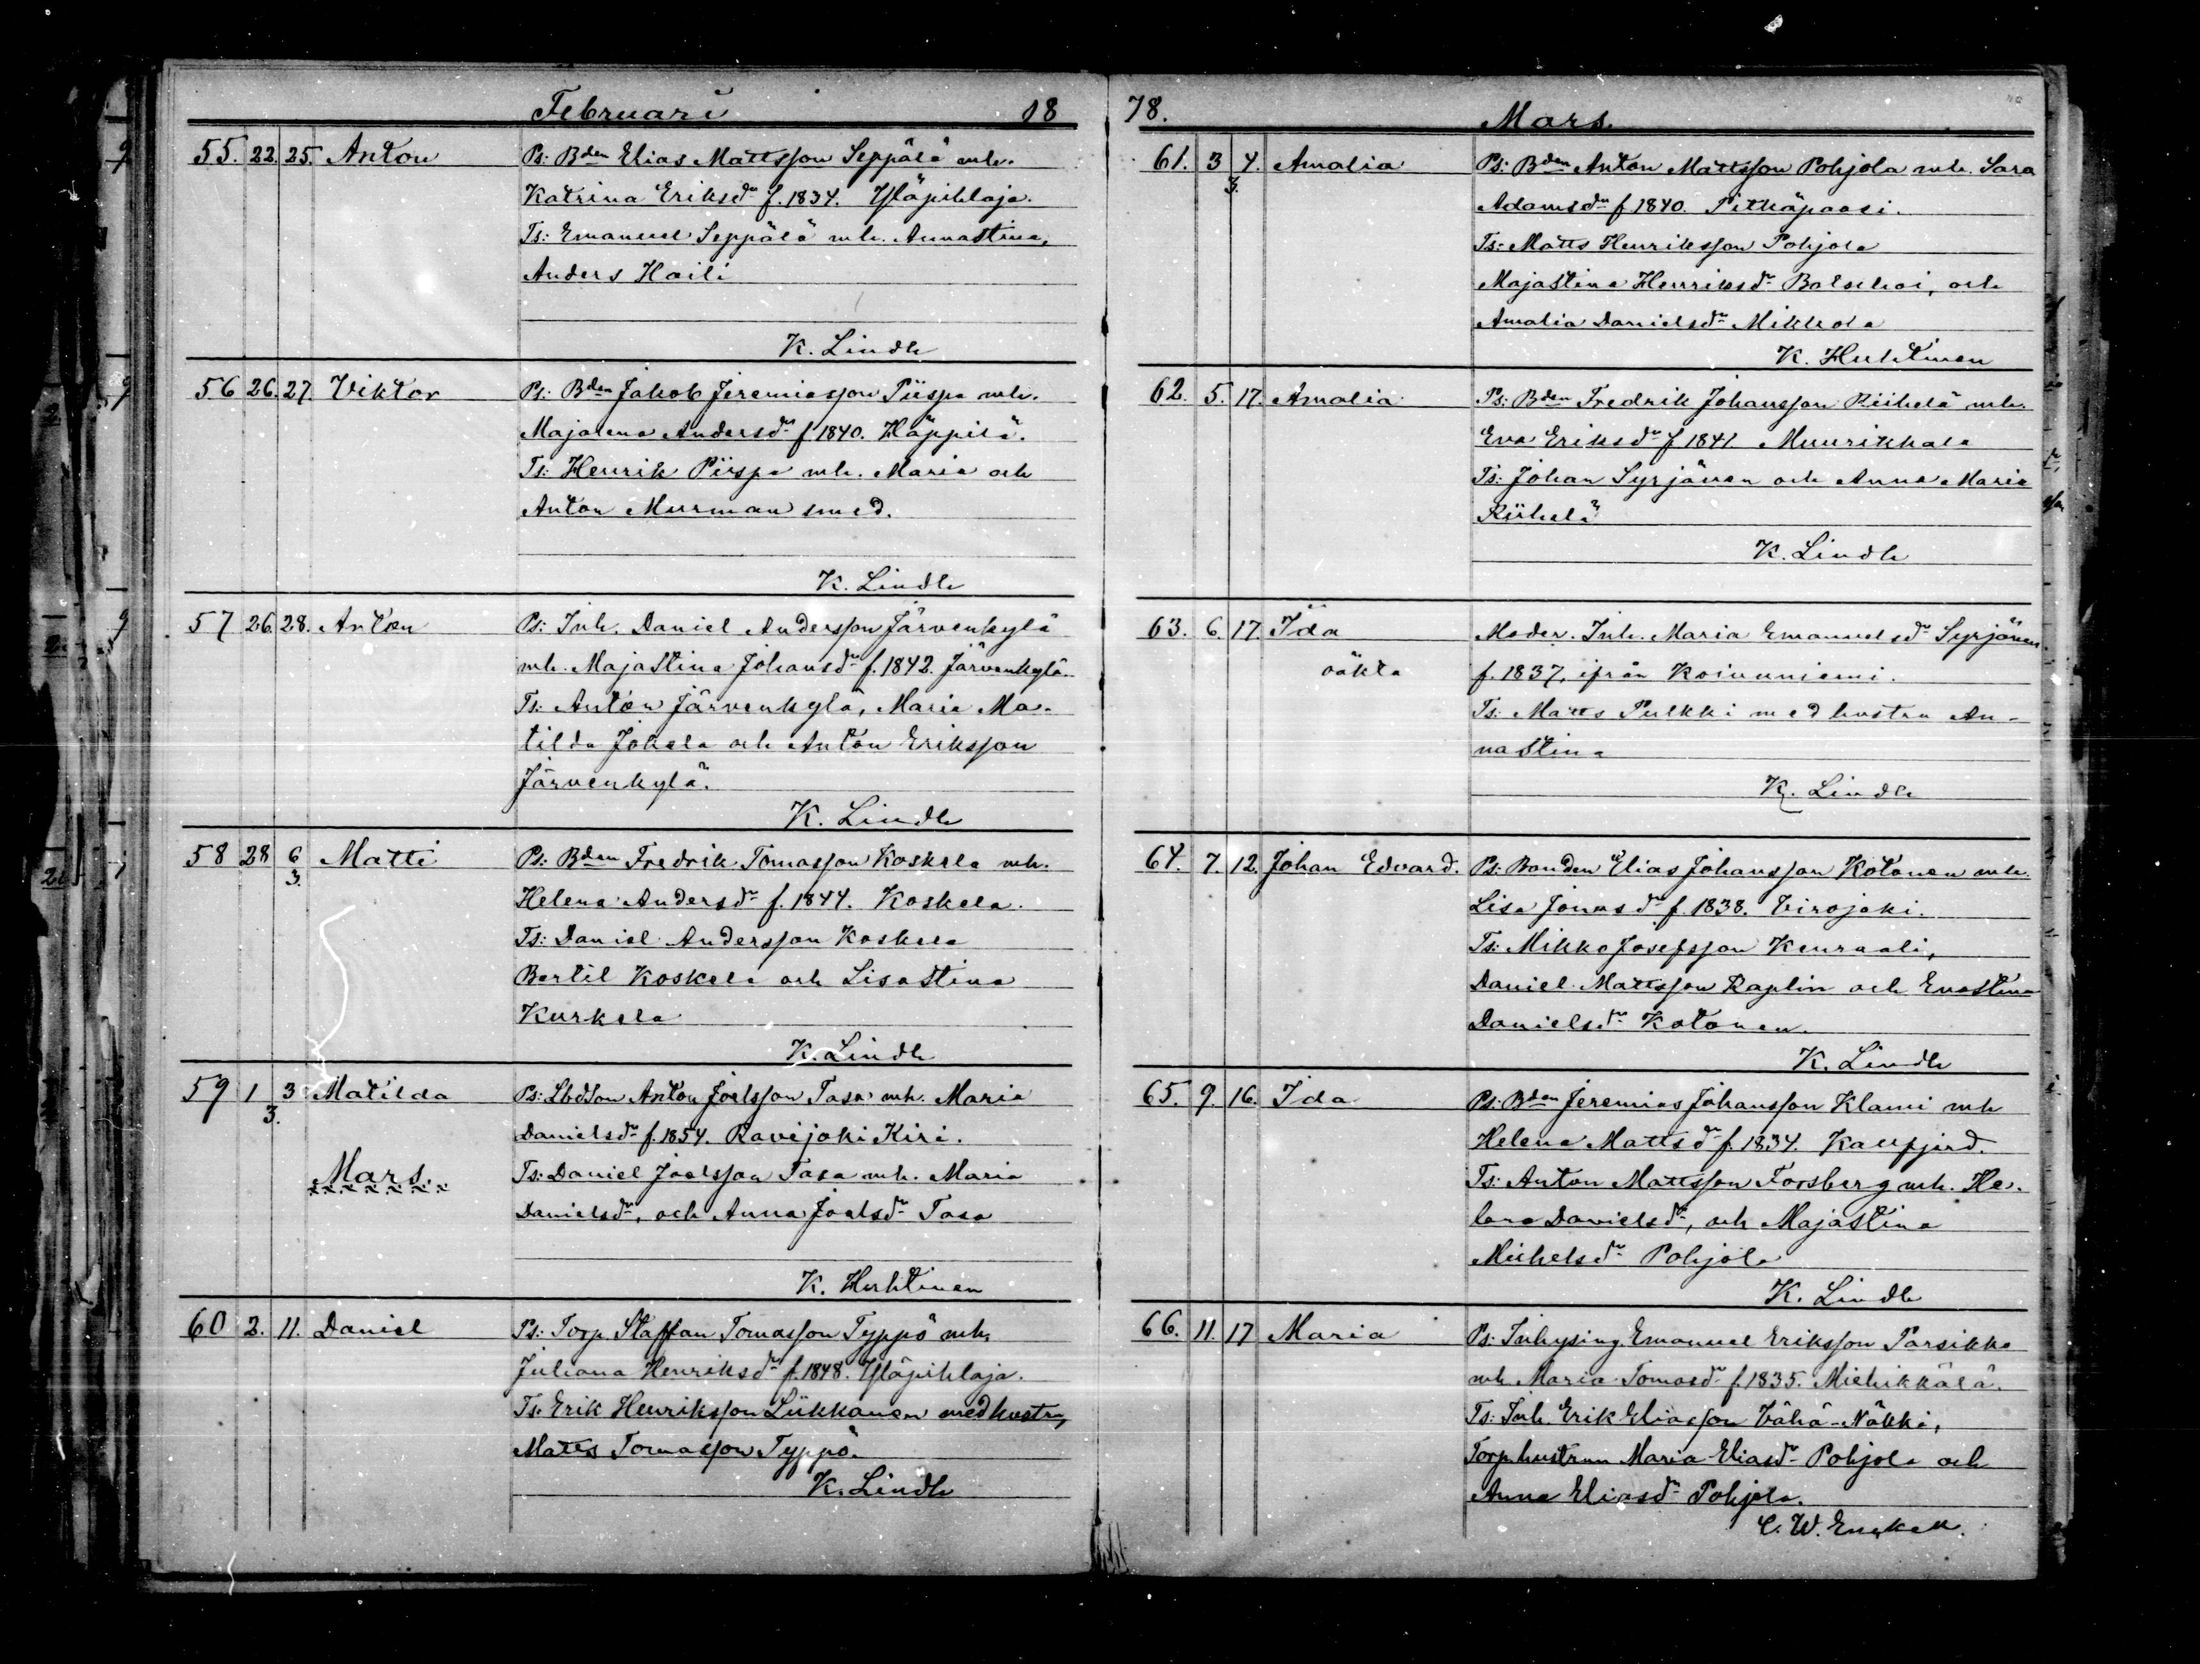 Februari 18
55. 22. 25. Anton Ps: Bden Elias Mattsson Seppälä mh.
Katrina Eriksdr f. 1834. Yläpihlaja.
Ts: Emanuel Seppälä mh. Annastina,
Anders Haili
K. Lindh
56 26. 27. Viktor Ps: Bden Jakob Jeremiasson Piispa mh.
Majalena Andersdr f 1840. Häppilä.
Ts: Henrik Piispa mh. Maria och
Anton Murman smed.
K. Lindh
57 26. 28. Anton Ps: Inh. Daniel Andersson Järvenkylä
mh. Majastina Johansdr f. 1842. Järvenkylä.
Ts: Anton Järvenkylä, Maria Ma-
tilda Jokela och Anton Eriksson
Järvenkylä.
K. Lindh
58 28 6 Matti Ps: Bden Fredrik Tomasson Koskela mh.
3.
Helena Andersdr f. 1844. Koskela.
Ts: Daniel Andersson Koskela
Bertil Koskela och Lisastina
Kurkela
K. Lindh
59 1 3 Matilda Ps: Lbdson Anton Joelsson Tasa mh. Maria
3.
Danielsdr f. 1854. Ravijoki Kiri.
Mars. Ts: Daniel Joelsson Tasa mh. Maria
Danielsdr, och Anna Joelsdr Tasa
K. Huhtinen
60 2. 11. Daniel Ps: Torp. Staffan Tomasson Typpö mh.
Juliana Henriksdr f. 1848. Yläpihlaja.
Ts: Erik Henriksson Liikkanen med hustru,
Matts Tomasson Typpö.
K. Lindh
78. Mars.
61. 3 4. Amalia Ps: Bden Anton Mattsson Pohjola mh. Sara
3.
Adamsdr f 1840. Pitkäpaasi.
Ts: Matts Henriksson Pohjola
Majastina Henriksdr Bolschoi, och
Amalia Danielsdr Mikkola
K. Huhtinen
62. 5. 17. Amalia Ps: Bden Fredrik Johansson Riihelä mh.
Eva Eriksdr f 1841 Muurikkala
Ts: Johan Syrjänen och Anna Maria
Riihelä
K. Lindh
63. 6. 17. Ida Moder. Inh. Maria Emanuelsdr Syrjänen
oäkta f. 1837, ifrån Koivuniemi.
Ts: Matts Pulkki med hustru An-
nastina
K. Lindh
64. 7. 12. Johan Edvard. Ps: Bonden Elias Johansson Kotonen mh.
Lisa Jonasdr f. 1838. Virojoki.
Ts: Mikko Josefsson Kenraali,
Daniel Mattsson Raplin och Evastina
Danielsdr Kotonen.
K. Lindh
65. 9. 16. Ida Ps: Bden Jeremias Johansson Klami mh
Helena Mattsdr f. 1834. Kallfjerd.
Ts: Anton Mattsson Forsberg mh. He-
lena Danielsdr, och Majastina
Michelsdr Pohjola
K. Lindh
66. 11. 17 Maria Ps: Inhysing. Emanuel Eriksson Parsikka
mh Maria Tomasdr f. 1835. Miehikkälä.
Ts: Inh. Erik Eliasson Vähä-Näkki,
Torp.hustrun Maria Eliasdr Pohjola och
Anna Eliasdr Pohjola.
C. W. Enckell.